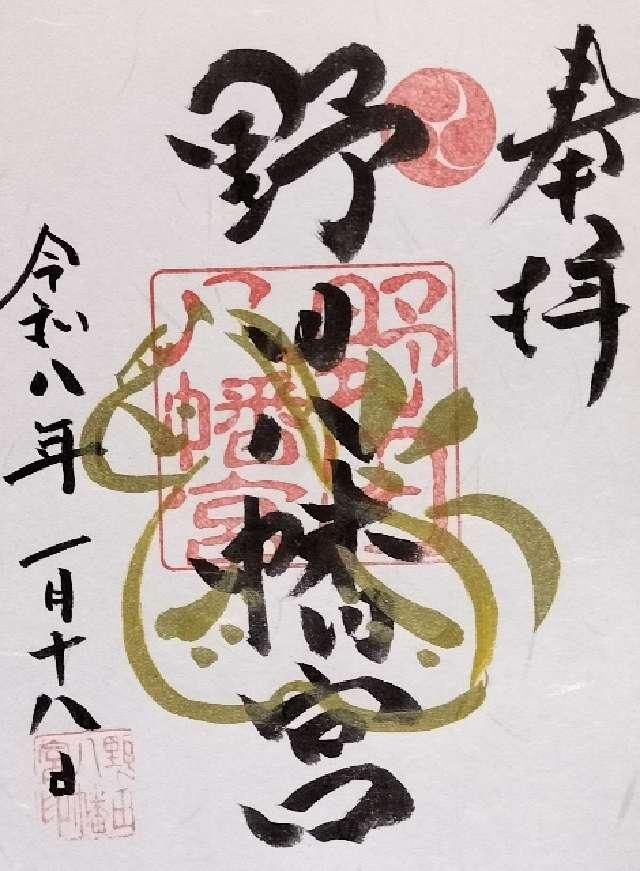 奉拝
野田八幡宮
野田八幡宮
令和八年一月十八日
野田八幡宮印